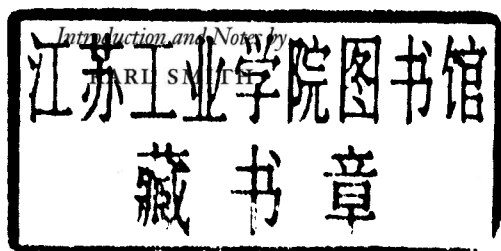 Introduction and Notes by
KARL SMITH
江苏工业学院图书馆
藏书章